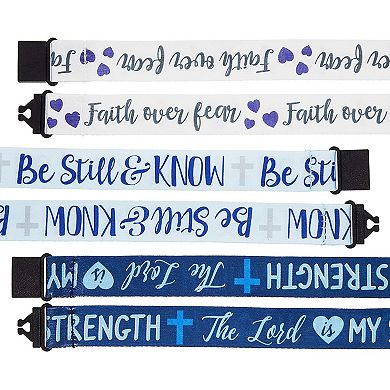 Faith over fear Fa
Faith over fear Faith over
Be Still & KNOW Be Sti
KNOW Be Still & KNOW
MY is The Lord STRENGTH
STRENGTH The Lord is MY